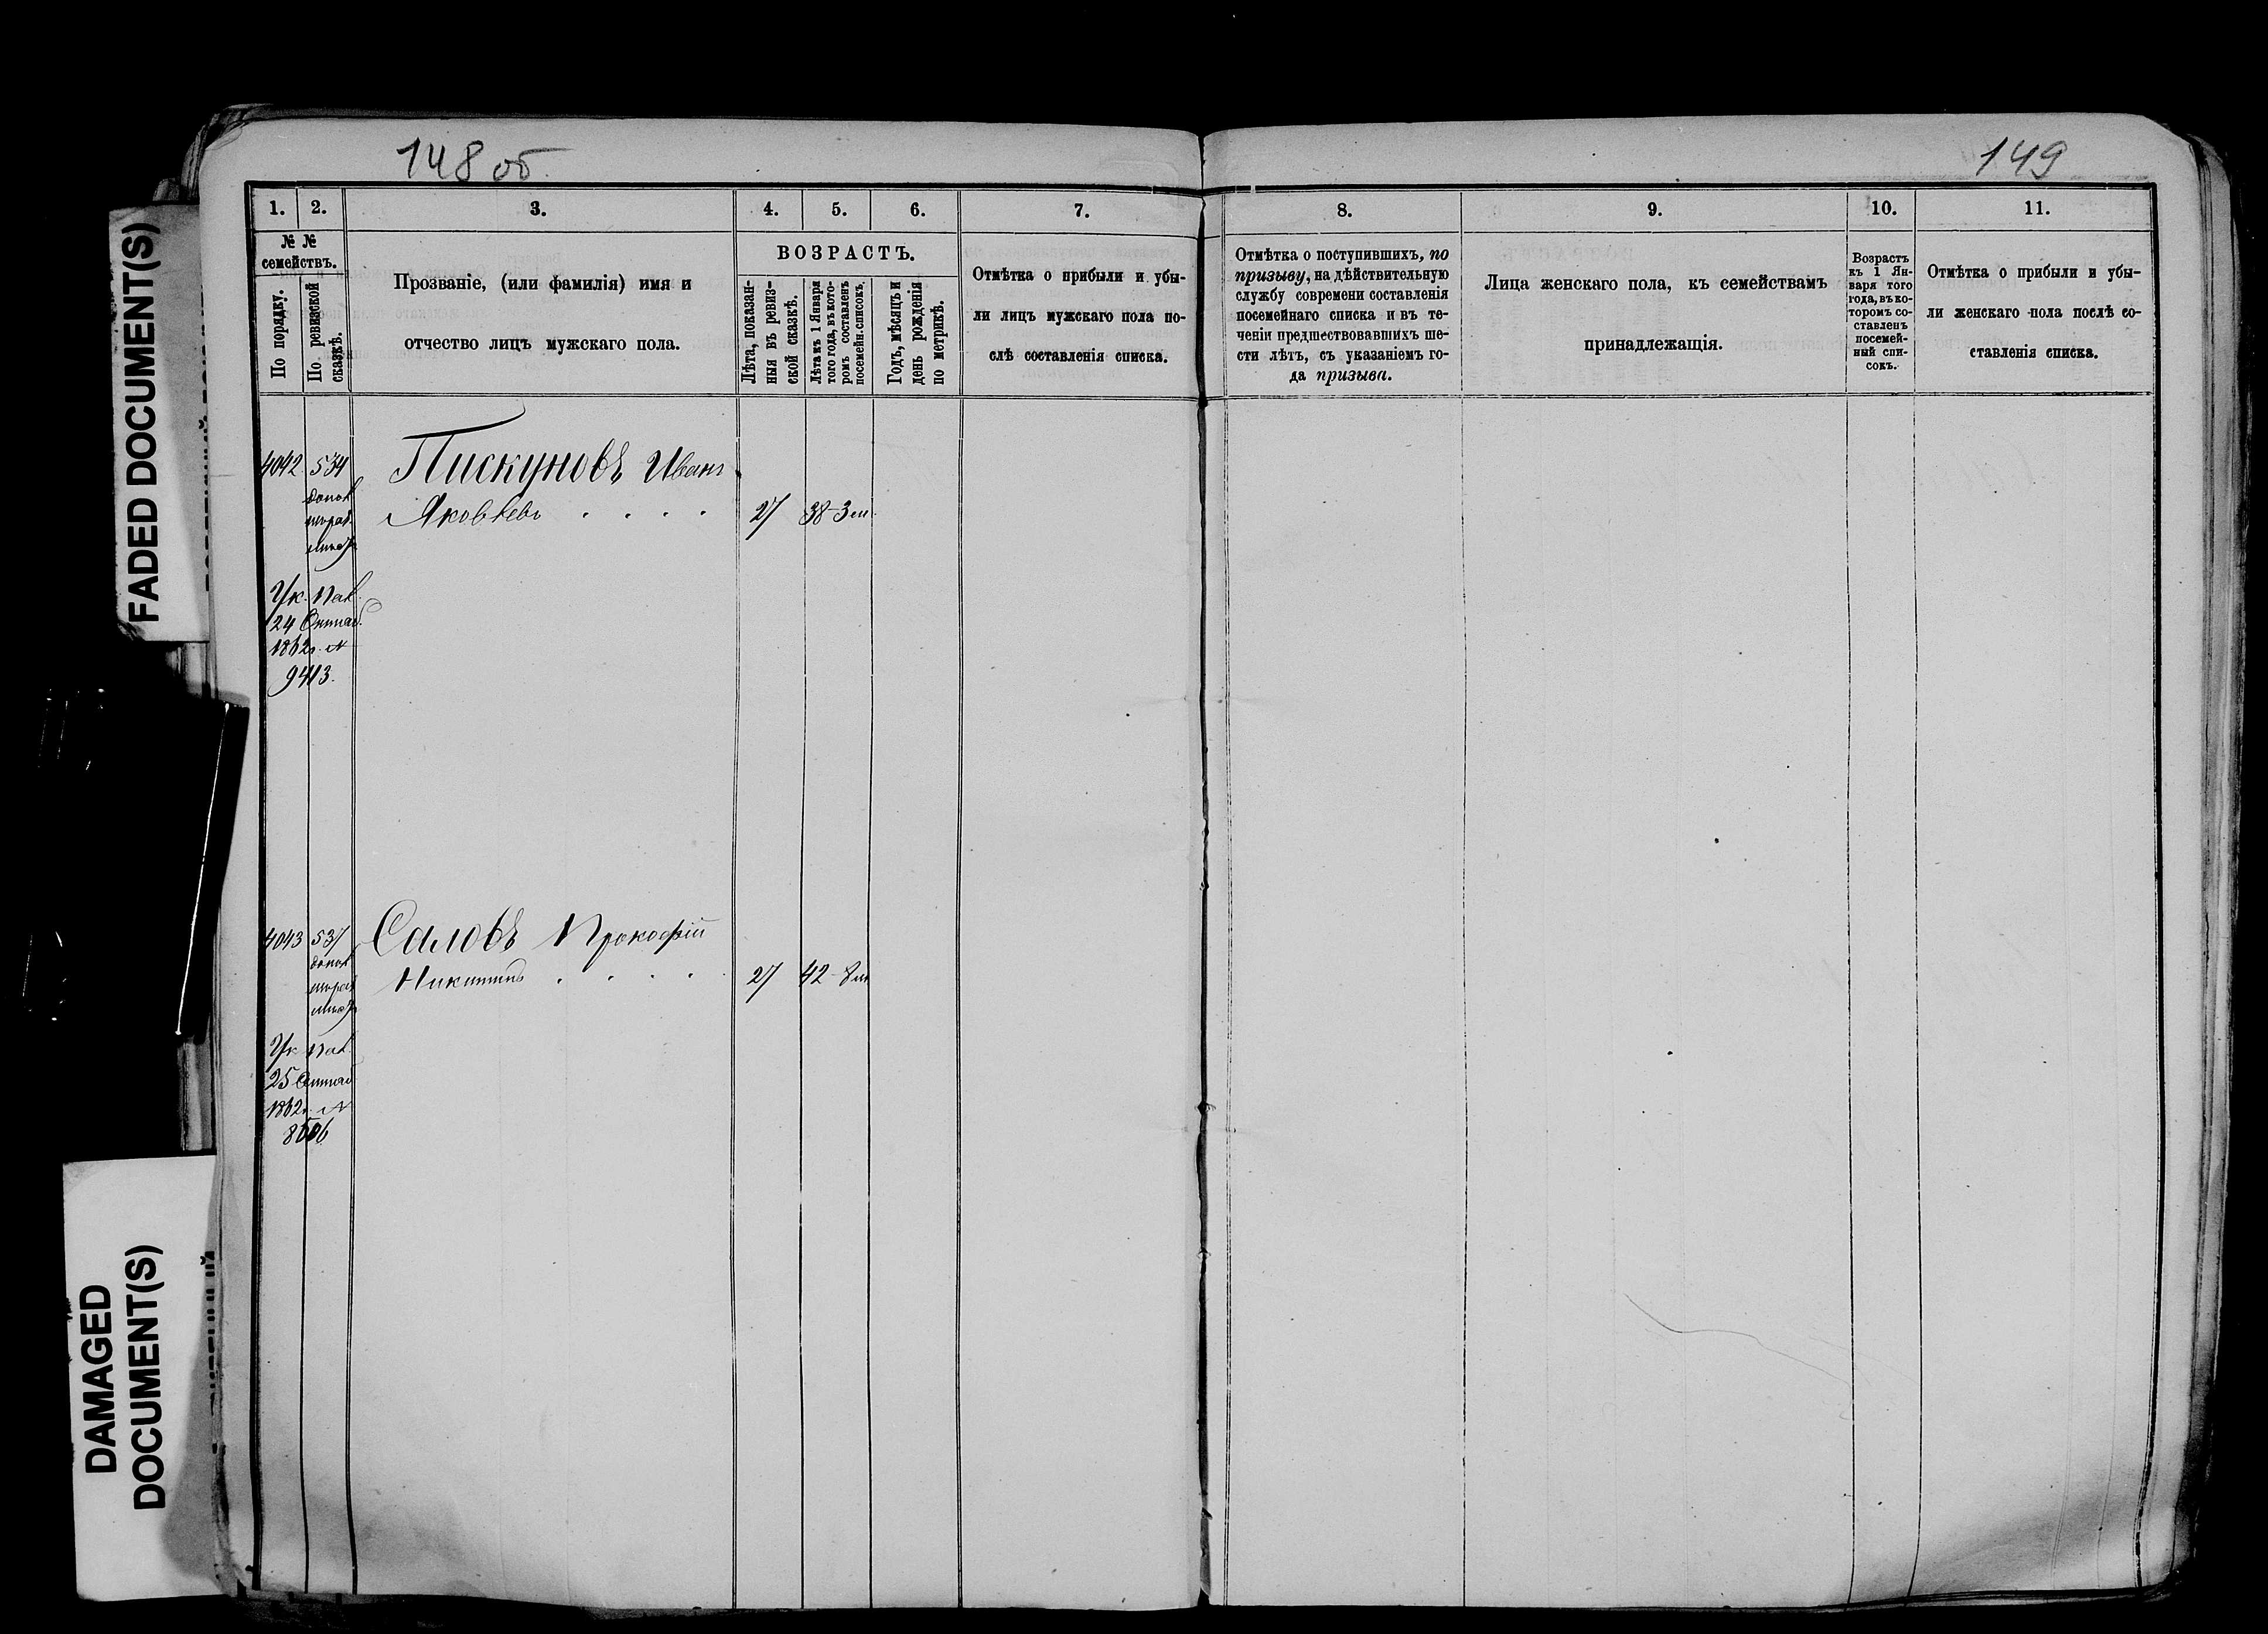 FADED DOCUMENT(S)
DAMAGED
DOCUMENT(S)
148 об.
149
1. 2. 3. 4. 5. 6. 7.
№ №
семействъ.
По порядку.
По ревизской
сказкѣ.
Прозваніе, (или фамилія) имя и
отчество лицъ мужскаго пола.
ВОЗРАСТЪ.
Лѣта, показан-
ныя въ ревиз-
ской сказкѣ.
Лѣта къ 1 Января
того года, въ кото-
ромъ составленъ
посемейн. список.
Годъ, мѣсяцъ и
день рожденія
по метрикѣ.
Отмѣтка о прибыли и убы-
ли лицъ мужскаго пола по-
слѣ составленія списка.
8. 9. 10. 11.
Отмѣтка о поступившихъ, по
призыву, на дѣйствительную
службу современи составленія
посемейнаго списка и въ те-
ченіи предшествовавшихъ ше-
сти лѣтъ, съ указаніемъ го-
да призыва.
Лица женскаго пола, къ семействамъ
принадлежащія.
Возрастъ
къ 1 Ян-
варя того
года, въ ко-
торомъ со-
ставленъ
посемей-
ный спи-
сокъ.
Отмѣтка о прибыли и убы-
ли женскаго пола послѣ со-
ставленія списка.
4042 534 Пискуновъ Иванъ
допол
Яковлевъ . . . . 27 38-3 м.
Ук. Пал.
24 Октяб.
1862 г. №
9413.
4043 537 Саловъ Прокофій
допол
Никитинъ . . . . 27 42-8 м
Ук Пал.
25
1862 г. №